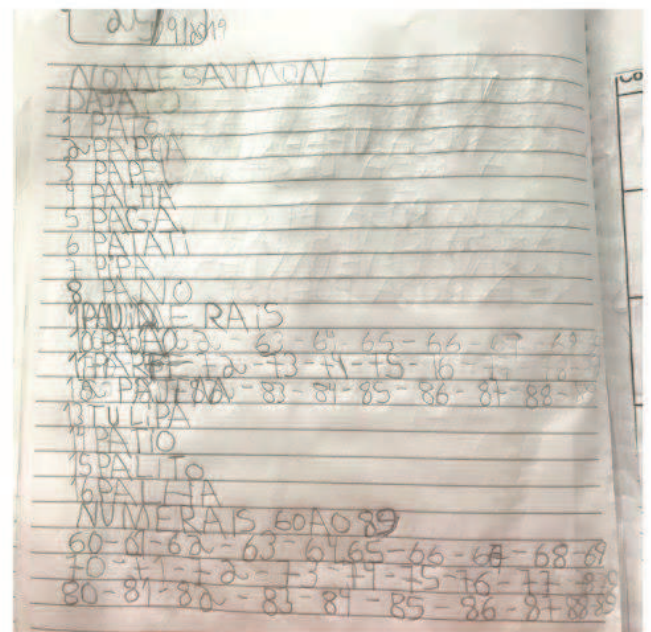 24/9/2019
NOME SAYMON
DADATO
1 PATO
2 PAPOA
3 PAPEL
4 PALHA
5 PAGA
6 PATATI
7 PIPA
8 PANO
9 ERAIS
10 PADÃO 62 - 63 - 64 - 65 - 66 - 67 - 68
11 - 72 - 73 - 74 - 75 - 76 - 77
12 82 - 83 - 84 - 85 - 86 - 87 - 88 -
13 TULIPA
14 PATIO
15 PALITO
16 PALHA
NUMERAIS 60 AO 89
60 - 61 - 62 - 63 - 64 65 - 66 - 67 - 68 - 69
70 - 71 - 72 - 73 - 74 - 75 - 76 - 77
80 - 81 - 82 - 83 - 84 - 85 - 86 - 87 88 89